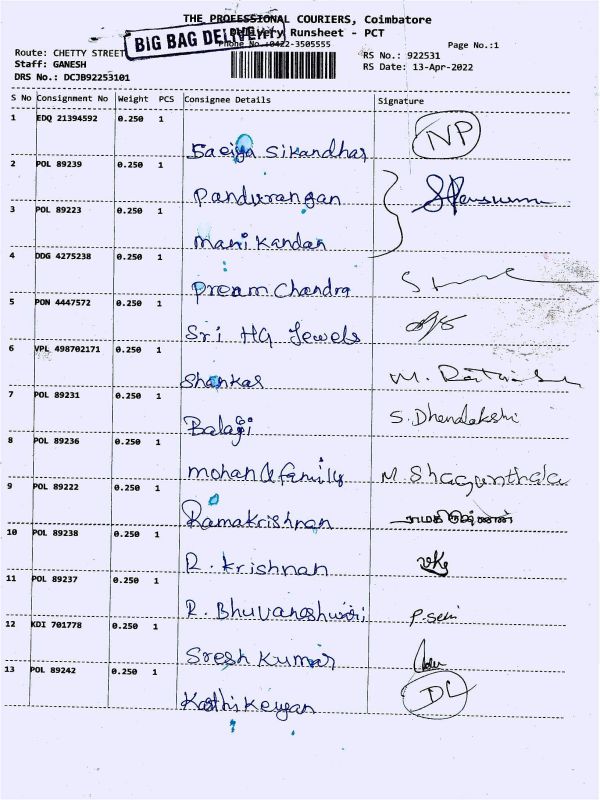 THE PROFESSIONAL COURIERS, Coimbatore
Delivery Runsheet - PCT
BIG BAG DELIVERY
Phone No.:0422-3505555
Page No.:1
Route: CHETTY STREET
Staff: GANESH
DRS No.: DCJB92253101
RS No.: 922531
RS Date: 13-Apr-2022
S No Consignment No Weight PCS Consignee Details Signature
1 EDQ 21394592 0.250 1 Sikandhar NP
2 POL 89239 0.250 1 Pandurangan
3 POL 89223 0.250 1 Manikandan
4 DDG 4275238 0.250 1 Pream Chandra
5 PON 4447572 0.250 1 Sri HG Jewels
6 VPL 498702171 0.250 1 Shankar M.
7 POL 89231 0.250 1 Balaji S. Dhendakshi
8 POL 89236 0.250 1 mohan & family M. Shagunthala
9 POL 89222 0.250 1 Ramakrishnan
10 POL 89238 0.250 1 R. Krishnan
11 POL 89237 0.250 1 R. Bhuvaneshwari P. Selvi
12 KDI 701778 0.250 1 Sresh Kumar
13 POL 89242 0.250 1 Kathikeyan DL